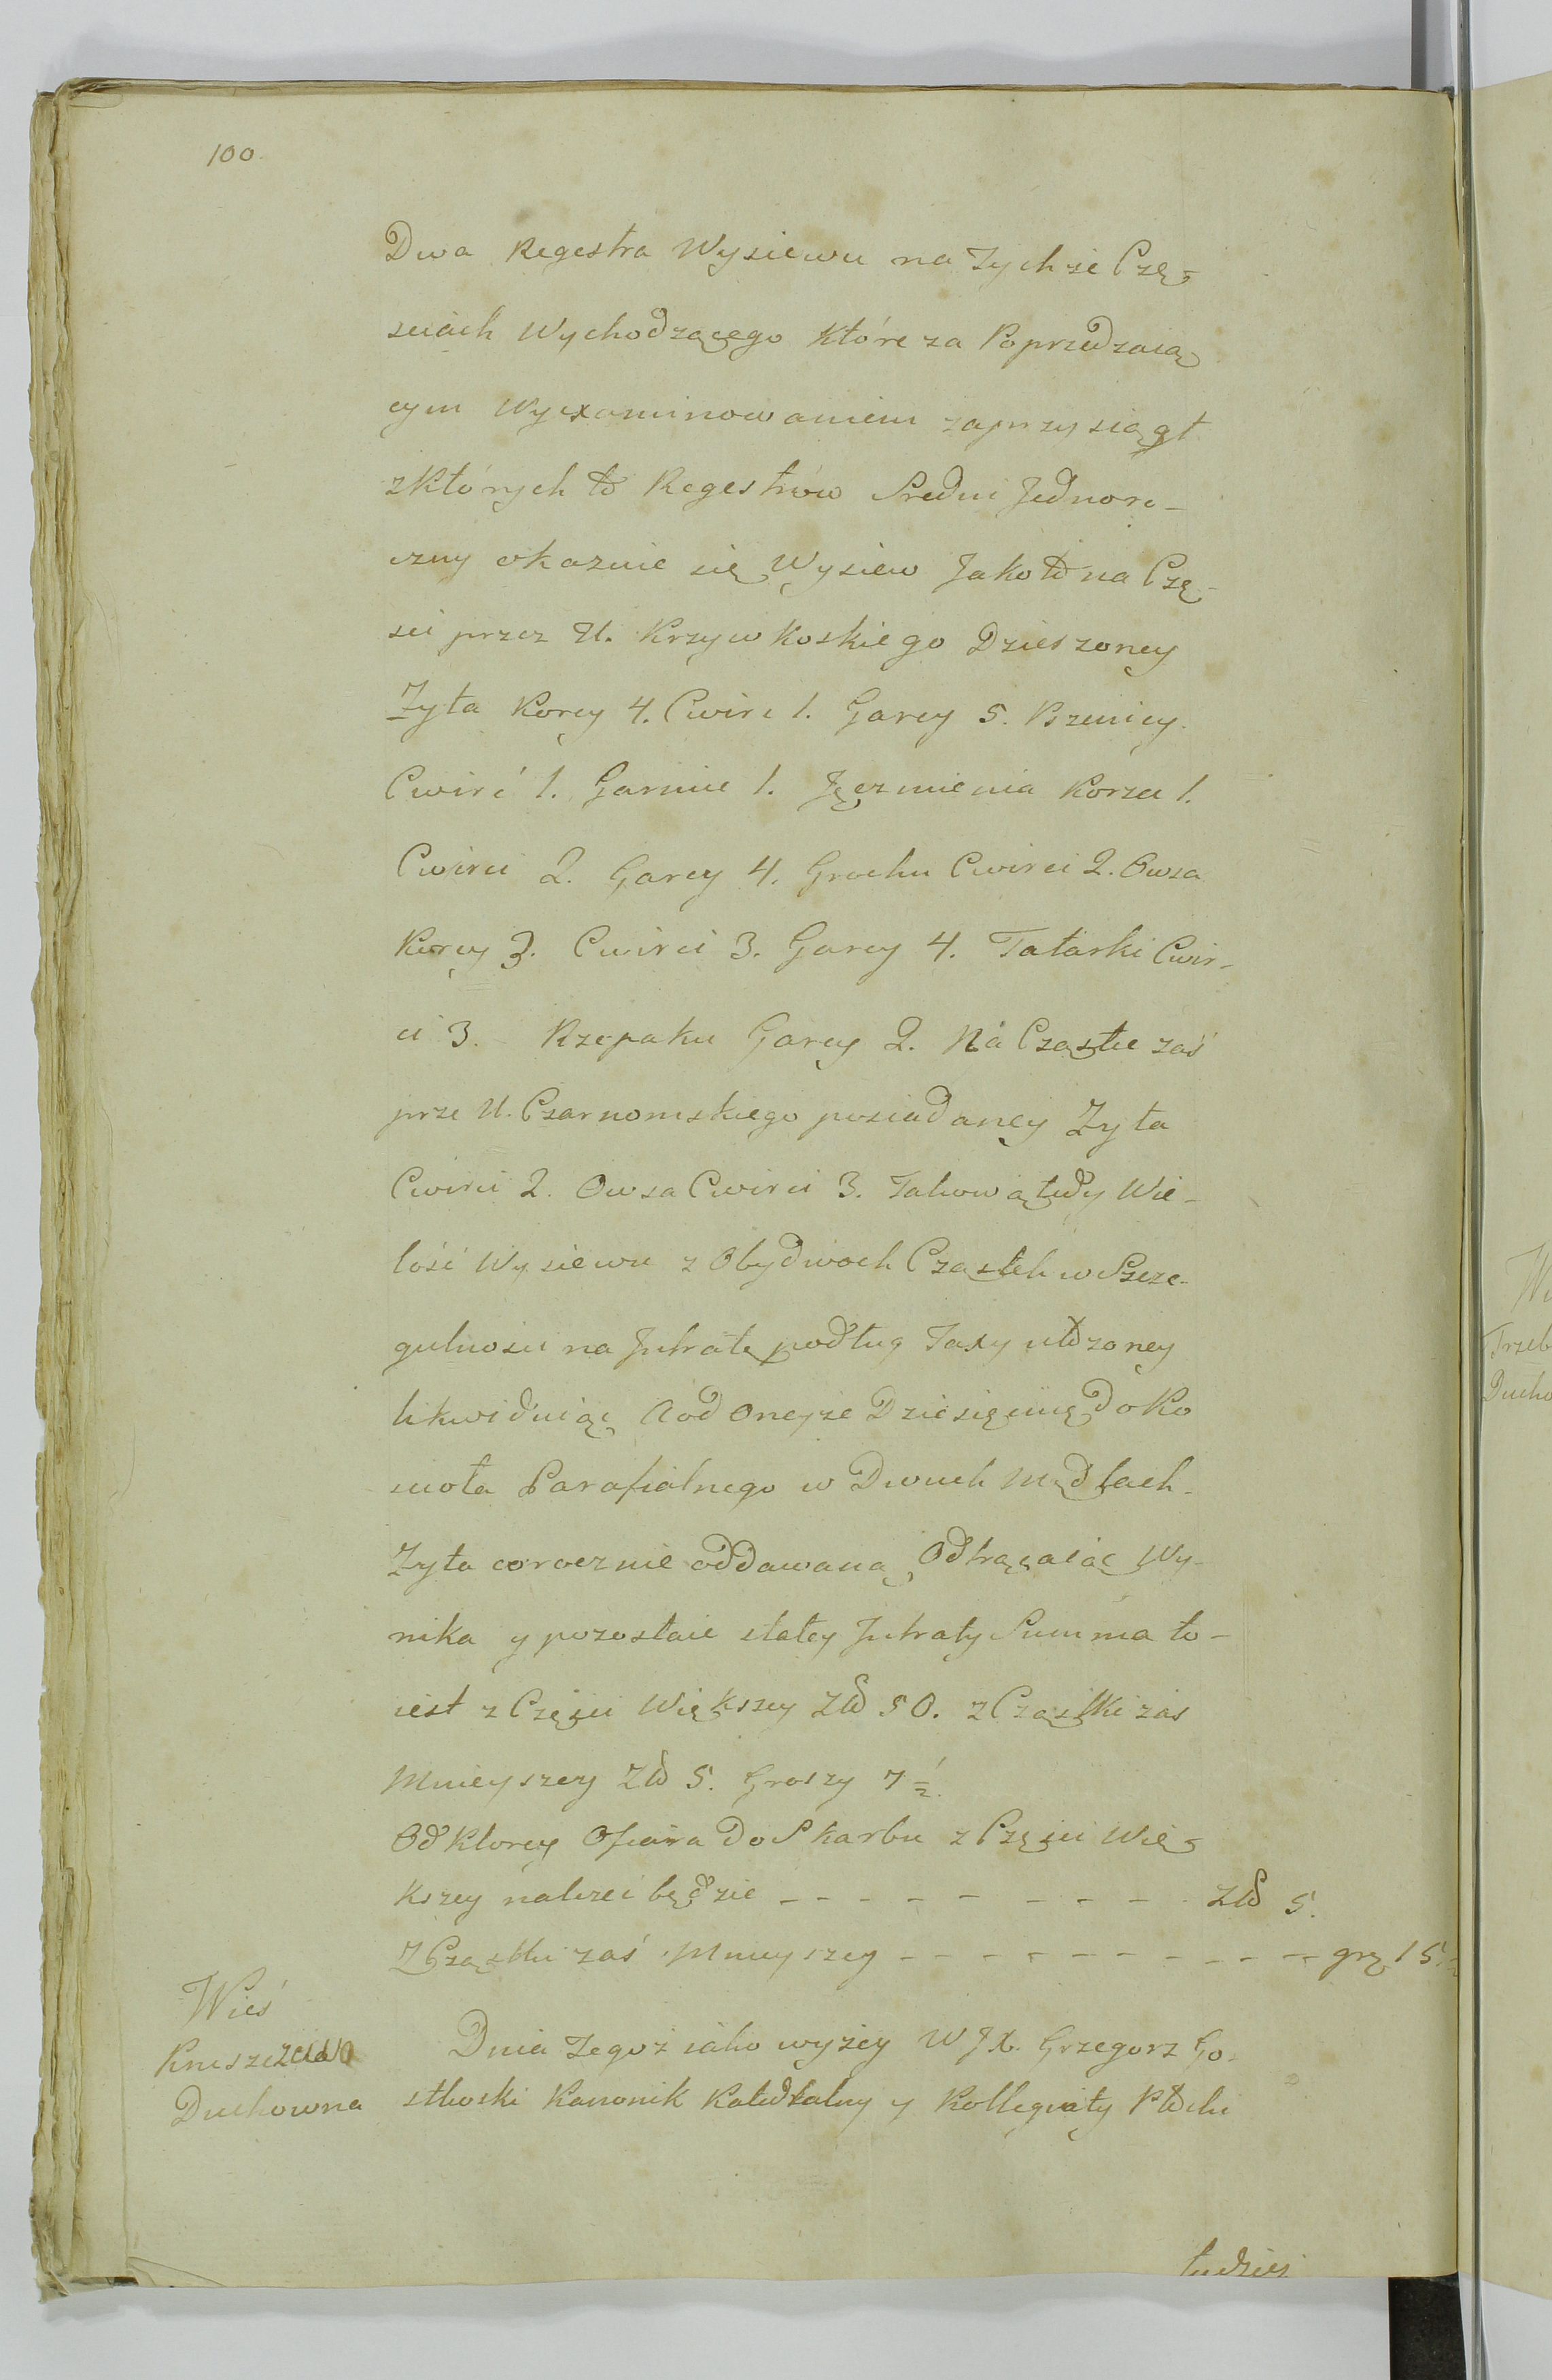 100.
Dwa Regestra Wysiewu na Tychże Czę-
sciach Wychodzącego które za Poprzedzaią
cym Wyexaminowaniem zaprzysiągł
z których to Regestrów Sredni Jednoro-
czny okazuie się Wysiew Jako to na Czę-
sci przez U. Krzywkoskiego Dzierzoney
Zyta Korcy 4. Cwirc 1. Garcy 5. Pszenicy.
Cwirć 1. Garnie 1. Jęczmienia Korzec 1.
Cwirci 2. Garcy 4. Grochu Cwirci 2. Owsa
Korcy 3. Cwirci 3. Garcy 4. Tatarki Cwir-
ci 3. Rzepaku Garcy 2. Na Cząstce zaś
prze U. Czarnomskiego posiadaney Zyta
Cwirci 2. Owsa Cwirci 3. Takową tedy Wie-
lość Wysiewu z Obydwoch Cząstek w Szcze-
gulnosci na Jntratę podług Taxy utdzoney
likwiduiąc A od Oneyże Dziesięcinę do Ko
sciola Parafialnego w Dwuch Mędlach.
Zyta corocznie oddawaną, Odtrącaiąc Wy-
nika y pozostaie stałey Jntraty Summa to-
iest z Częsci Większey Złł 50. z Cząstki zas
Mnieyszey Złł 5. Groszy 7 1/2.
Od Ktorey Ofiara do Skarbu z Częsci Wię-
kszey należeć będzie - - - - - - - - - - Złł 5.
Z Cząstki zaś Mnieyszey - - - - - - - - - - - grz 15
Wieś
Kruszczewo
Duchowna
Dnia Tegoż iako wyżey W JX. Grzegorz Go-
stkoski Kanonik Katedralny y Kollegiaty
tudzież